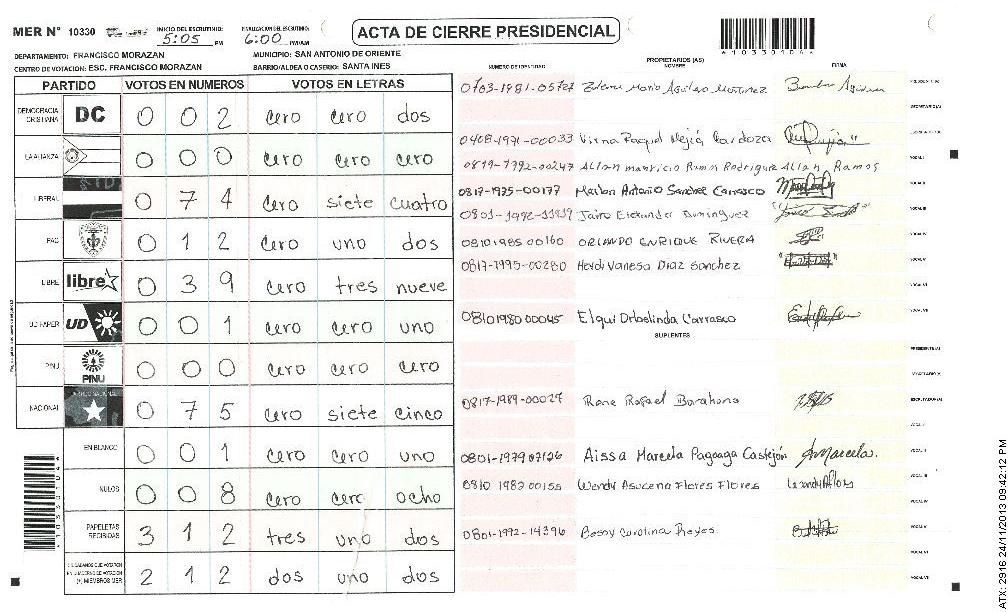 MER N° 10330
INICIO DEL ESCRUTINIO: 5:05 PM
FINALIZACION DEL ESCRUTINIO: 6:00 PM/AM
ACTA DE CIERRE PRESIDENCIAL
DEPARTAMENTO: FRANCISCO MORAZAN
MUNICIPIO: SAN ANTONIO DE ORIENTE
CENTRO DE VOTACION: ESC. FRANCISCO MORAZAN
BARRIO/ALDEA O CASERIO: SANTA INES
PARTIDO VOTOS EN NUMEROS VOTOS EN LETRAS
DEMOCRACIA CRISTIANA DC 0 0 2 cero cero dos
LA ALIANZA 0 0 0 cero cero cero
LIBERAL 0 7 4 cero siete cuatro
PAC 0 1 2 cero uno dos
LIBRE libre 0 3 9 cero tres nueve
UD-FAPER UD 0 0 1 cero cero uno
PINU PINU 0 0 0 cero cero cero
NACIONAL 0 7 5 cero siete cinco
EN BLANCO 0 0 1 cero cero uno
NULOS 0 0 8 cero cero ocho
PAPELETAS RECIBIDAS 3 1 2 tres uno dos
CIUDADANOS QUE VOTARON
(+) MIEMBROS MER 2 1 2 dos uno dos
NUMERO DE IDENTIDAD
PROPIETARIOS (AS)
NOMBRE
FIRMA
0703-1981-05727 Mario Aguilera Martinez
0408-1971-00033 Virna Raquel Mejia Cardoza
0819-1992-00247 Allan Mauricio Ramos Rodriguez Allan Ramos
0817-1975-00177 Marlon Antonio Sanchez Carrasco
0801-1992-11819 Jairo Dominguez
0810 1985 00160 ORLANDO ENRIQUE RIVERA
0817-1995-00280 Heydi Vanesa Diaz Sanchez
0810 1980 00045 Elqui Orbelinda Carrasco
SUPLENTES
0817-1989-00027 Rene Rafael Barahona
0801-1979 07126 Aissa Marcela Pagoaga Castejón Marcela.
0810 1982 00155 Wendy Asucena Flores Flores
0801-1992-14396 Bessy Carolina Reyes.
ATX: 2916 24/11/2013 09:42:12 PM